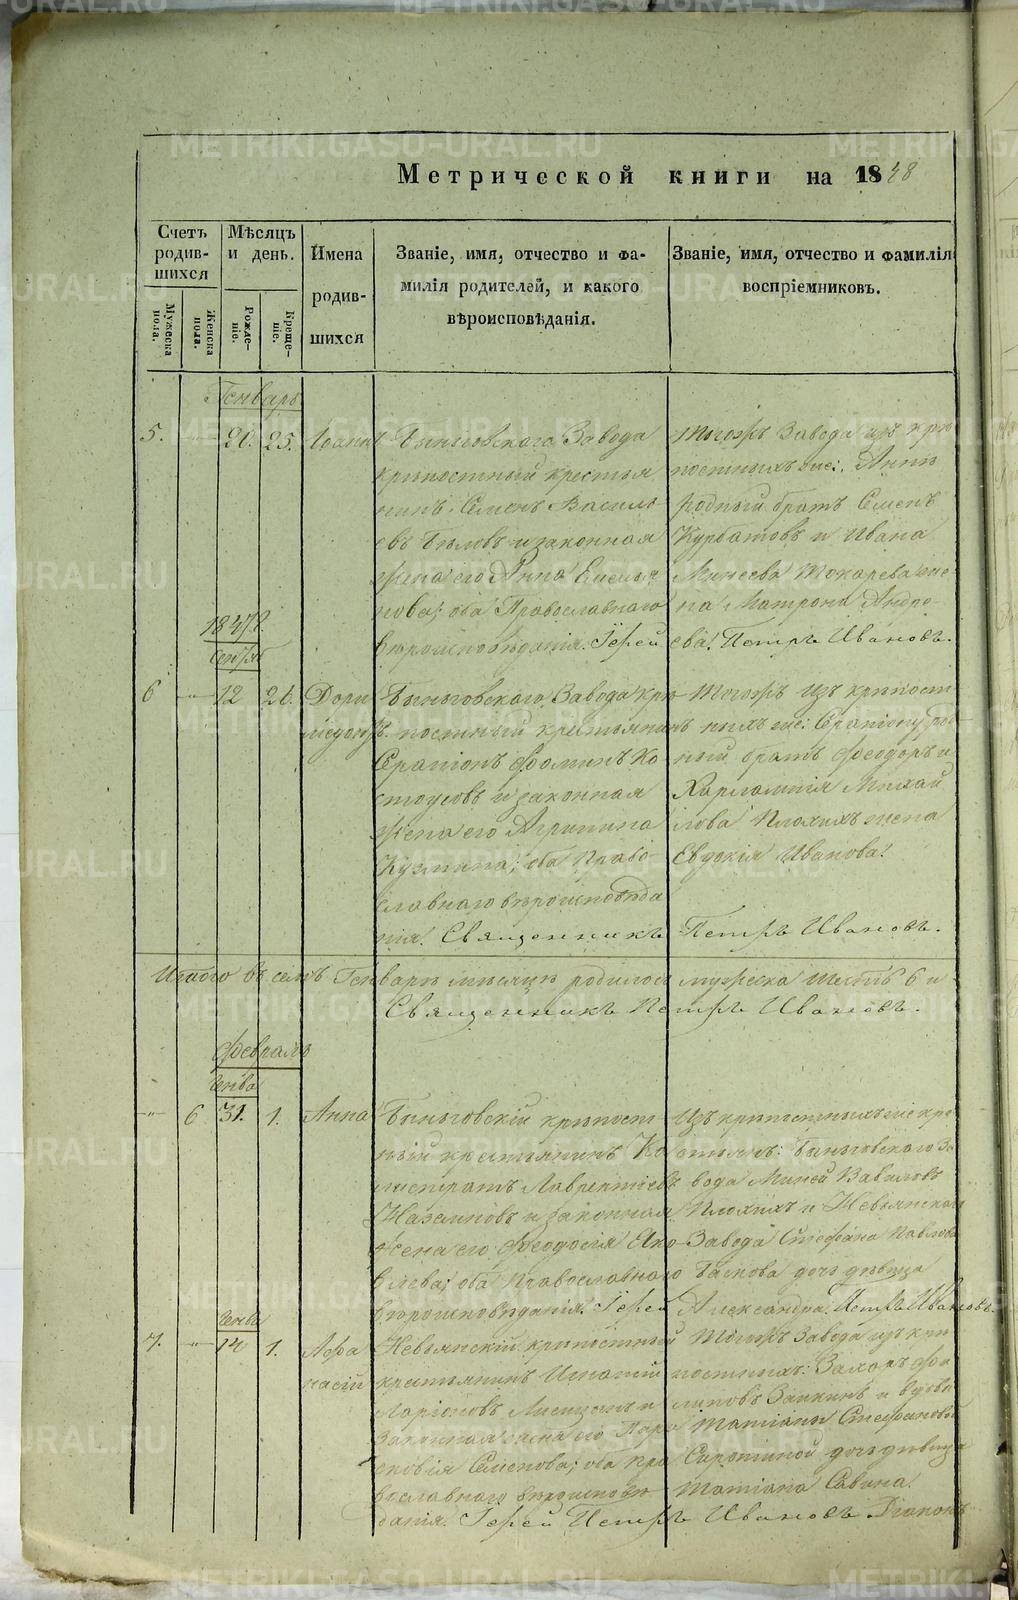 Метрической книги на 1848
Счетъ родив- шихся
Мѣсяцъ и день.
Имена родив- шихся
Званіе, имя, отчество и фа- милія родителей, и какого вѣроисповѣданія.
Званіе, имя, отчество и фамилія воспріемниковъ.
Мужеска пола.
Женска пола.
Рожде- ніе.
Креще- ніе.
Генварь
5. 20. 25. Іоаннъ
Быньговскаго Завода
крѣпостный крестья
нинъ Семенъ Василь-
евъ Бѣловъ и законная
жена его Анна Емелья
нова; оба Православнаго
вѣроисповѣданія. Іерей
тогожъ Завода изъ крѣ
постныхъ Анны
родный братъ Семенъ
Курбатовъ и Ивана
Минеева Токарева же-
на Матрона Андре-
ева. Петръ Ивановъ.
1847 г.
6 12 26. Дори
медонтъ.
Быньговскаго Завода крѣ
постный крестьянинъ
Серапіонъ Фоминъ Ко-
стоусовъ и законная
жена его Агрипина
Кузмина; оба Право-
славнаго вѣроисповѣда
нія. Священникъ
Тогожъ изъ крѣпост-
ныхъ Серапіону род-
ный братъ Феодоръ и
Харлампія Михай
лова Плохихъ жена
Евдокія Иванова.
Петръ Ивановъ.
Итого въ семъ Генварѣ мѣсяцѣ родилось мужеска шесть 6 и
Священникъ Петръ Ивановъ.
Февраль
Генва
6 31. 1. Анна
Быньговскій крѣпост
ный крестьянинъ Ка
листратъ Лаврентіевъ
и законная
жена его Феодосія Яко-
влева; оба Православнаго
вѣроисповѣданія. Іерей
Изъ крѣпостныхъ кре
стьянъ: Быньговскаго За
вода Миней Вавиловъ
Плохихъ и Невьянскаго
Завода Стефана Павлова
дочь дѣвица
Александра. Петръ Ивановъ.
Генва
7. 14 1. Афа
насій
Невьянскій крѣпостный
крестьянинъ Игнатій
Ларіоновъ и
законная жена его Пара
сковія Семенова; оба Пра
вославнаго вѣроисповѣ
данія. Іерей Петръ Ивановъ. Діаконъ
Тогожъ Завода изъ крѣ
постныхъ: Захаръ Фи
липовъ Заикинъ и вдовы
Татіаны Стефановой
Сиротиной дочь дѣвица
Татіана Савина.
METRIKI.GASO-URAL.RU